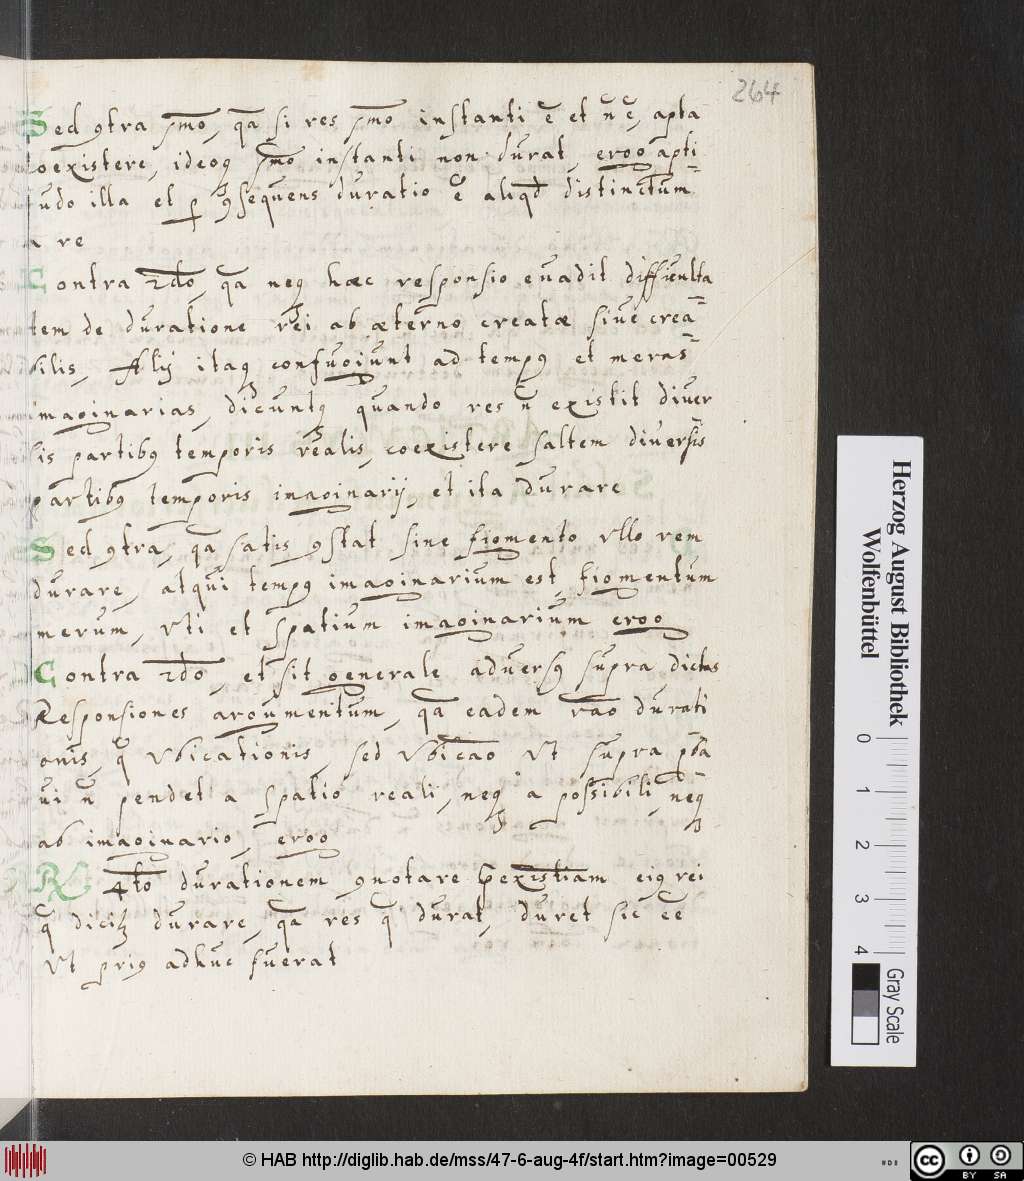 264
Sed 9tra pmo, qa si res pmo instanti ē et ñ ē, apta
coexistere, ideoq pmo instanti non durat, ergo apti-
tudo illa et p 9sequens duratio ē aliqd distinctum
a re
Contra 2do, qa neq hæc responsio euadit difficulta
tem de duratione rei ab æterno creatæ siue crea-
bilis, Alij itaq confugiunt ad temp9 et meras
imaginarias, dicuntq quando res ñ existit diuer
sis partib9 temporis realis, coexistere saltem diuersis
partib9 temporis imaginarij, et ita durare
Sed 9tra, qa satis 9stat sine figmento vllo rem
durare, atqui temp9 imaginarium est, figmentum
merum, vti et spatium imaginarium ergo
Contra 2do, et sit generale aduers9 supra dictas
Responsiones argumentum, qa eadem rao durati
onis, q vbicationis, sed vbicao ut supra pba
ui ñ pendet a spatio reali, neq a possibili, neq
ab imaginario, ergo
R 4to durationem 9notare pexistiam ei9 rei
q dicit durare, qa res q durat, duret sic ēē
ut pri9 adhuc fuerat
Herzog August Bibliothek
Wolfenbüttel
0 1 2 3 4
Gray Scale
© HAB http://diglib.hab.de/mss/47-6-aug-4f/start.htm?image=00529
cc BY SA